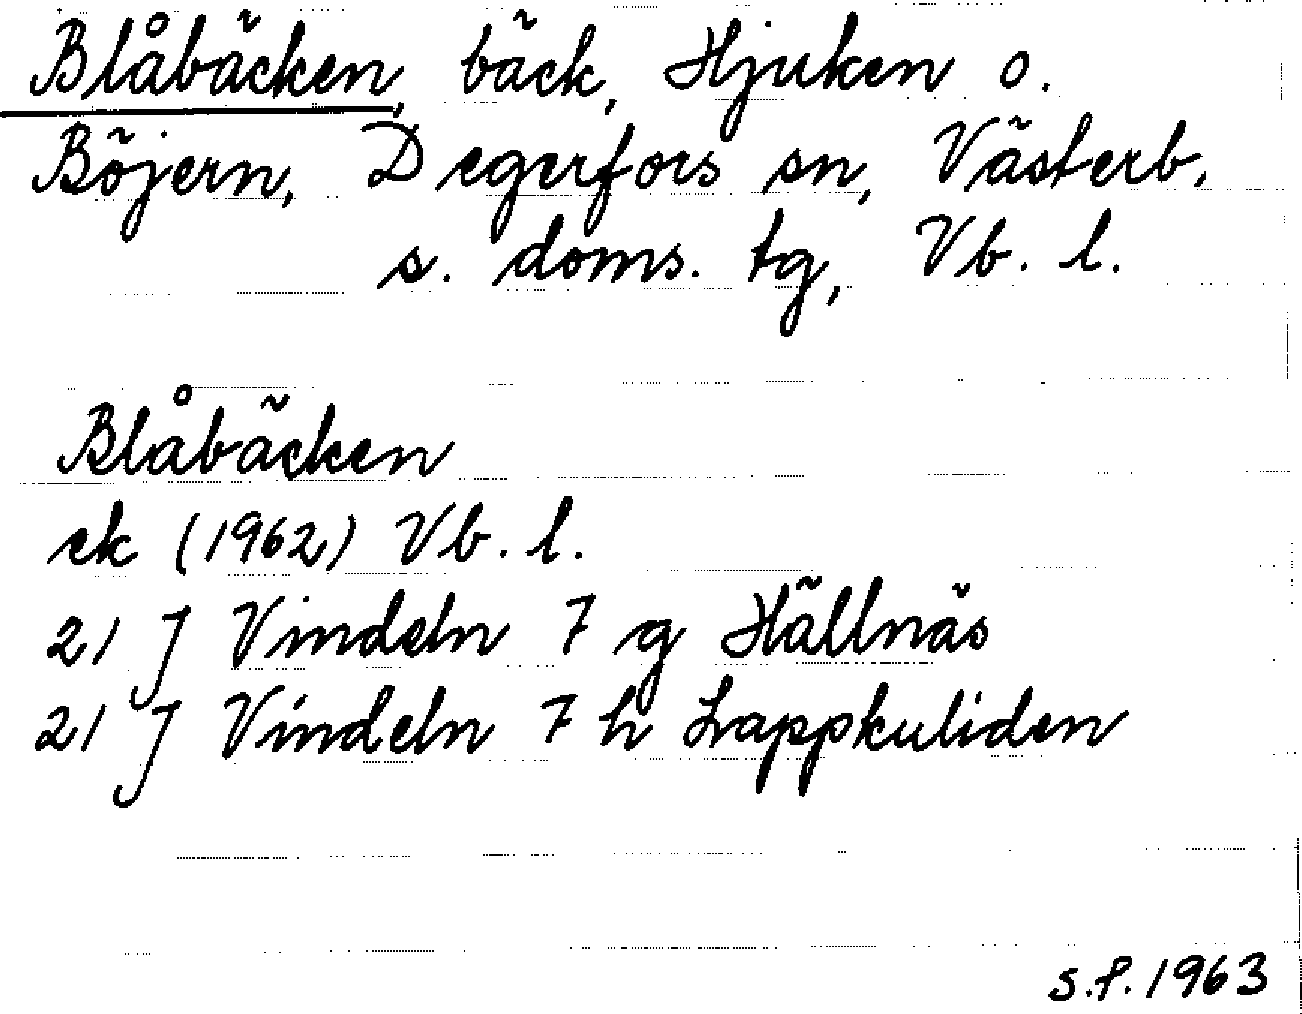 Blåbäcken, bäck, Hjuken o.
Böjern, Degerfors sn, Västerb.
s. doms. tg, Vb. l.
Blåbäcken
ek (1962) Vb. l.
21 J Vindeln 7 g Hällnäs
21 J Vindeln 7 h Lappkuliden
S.f. 1963